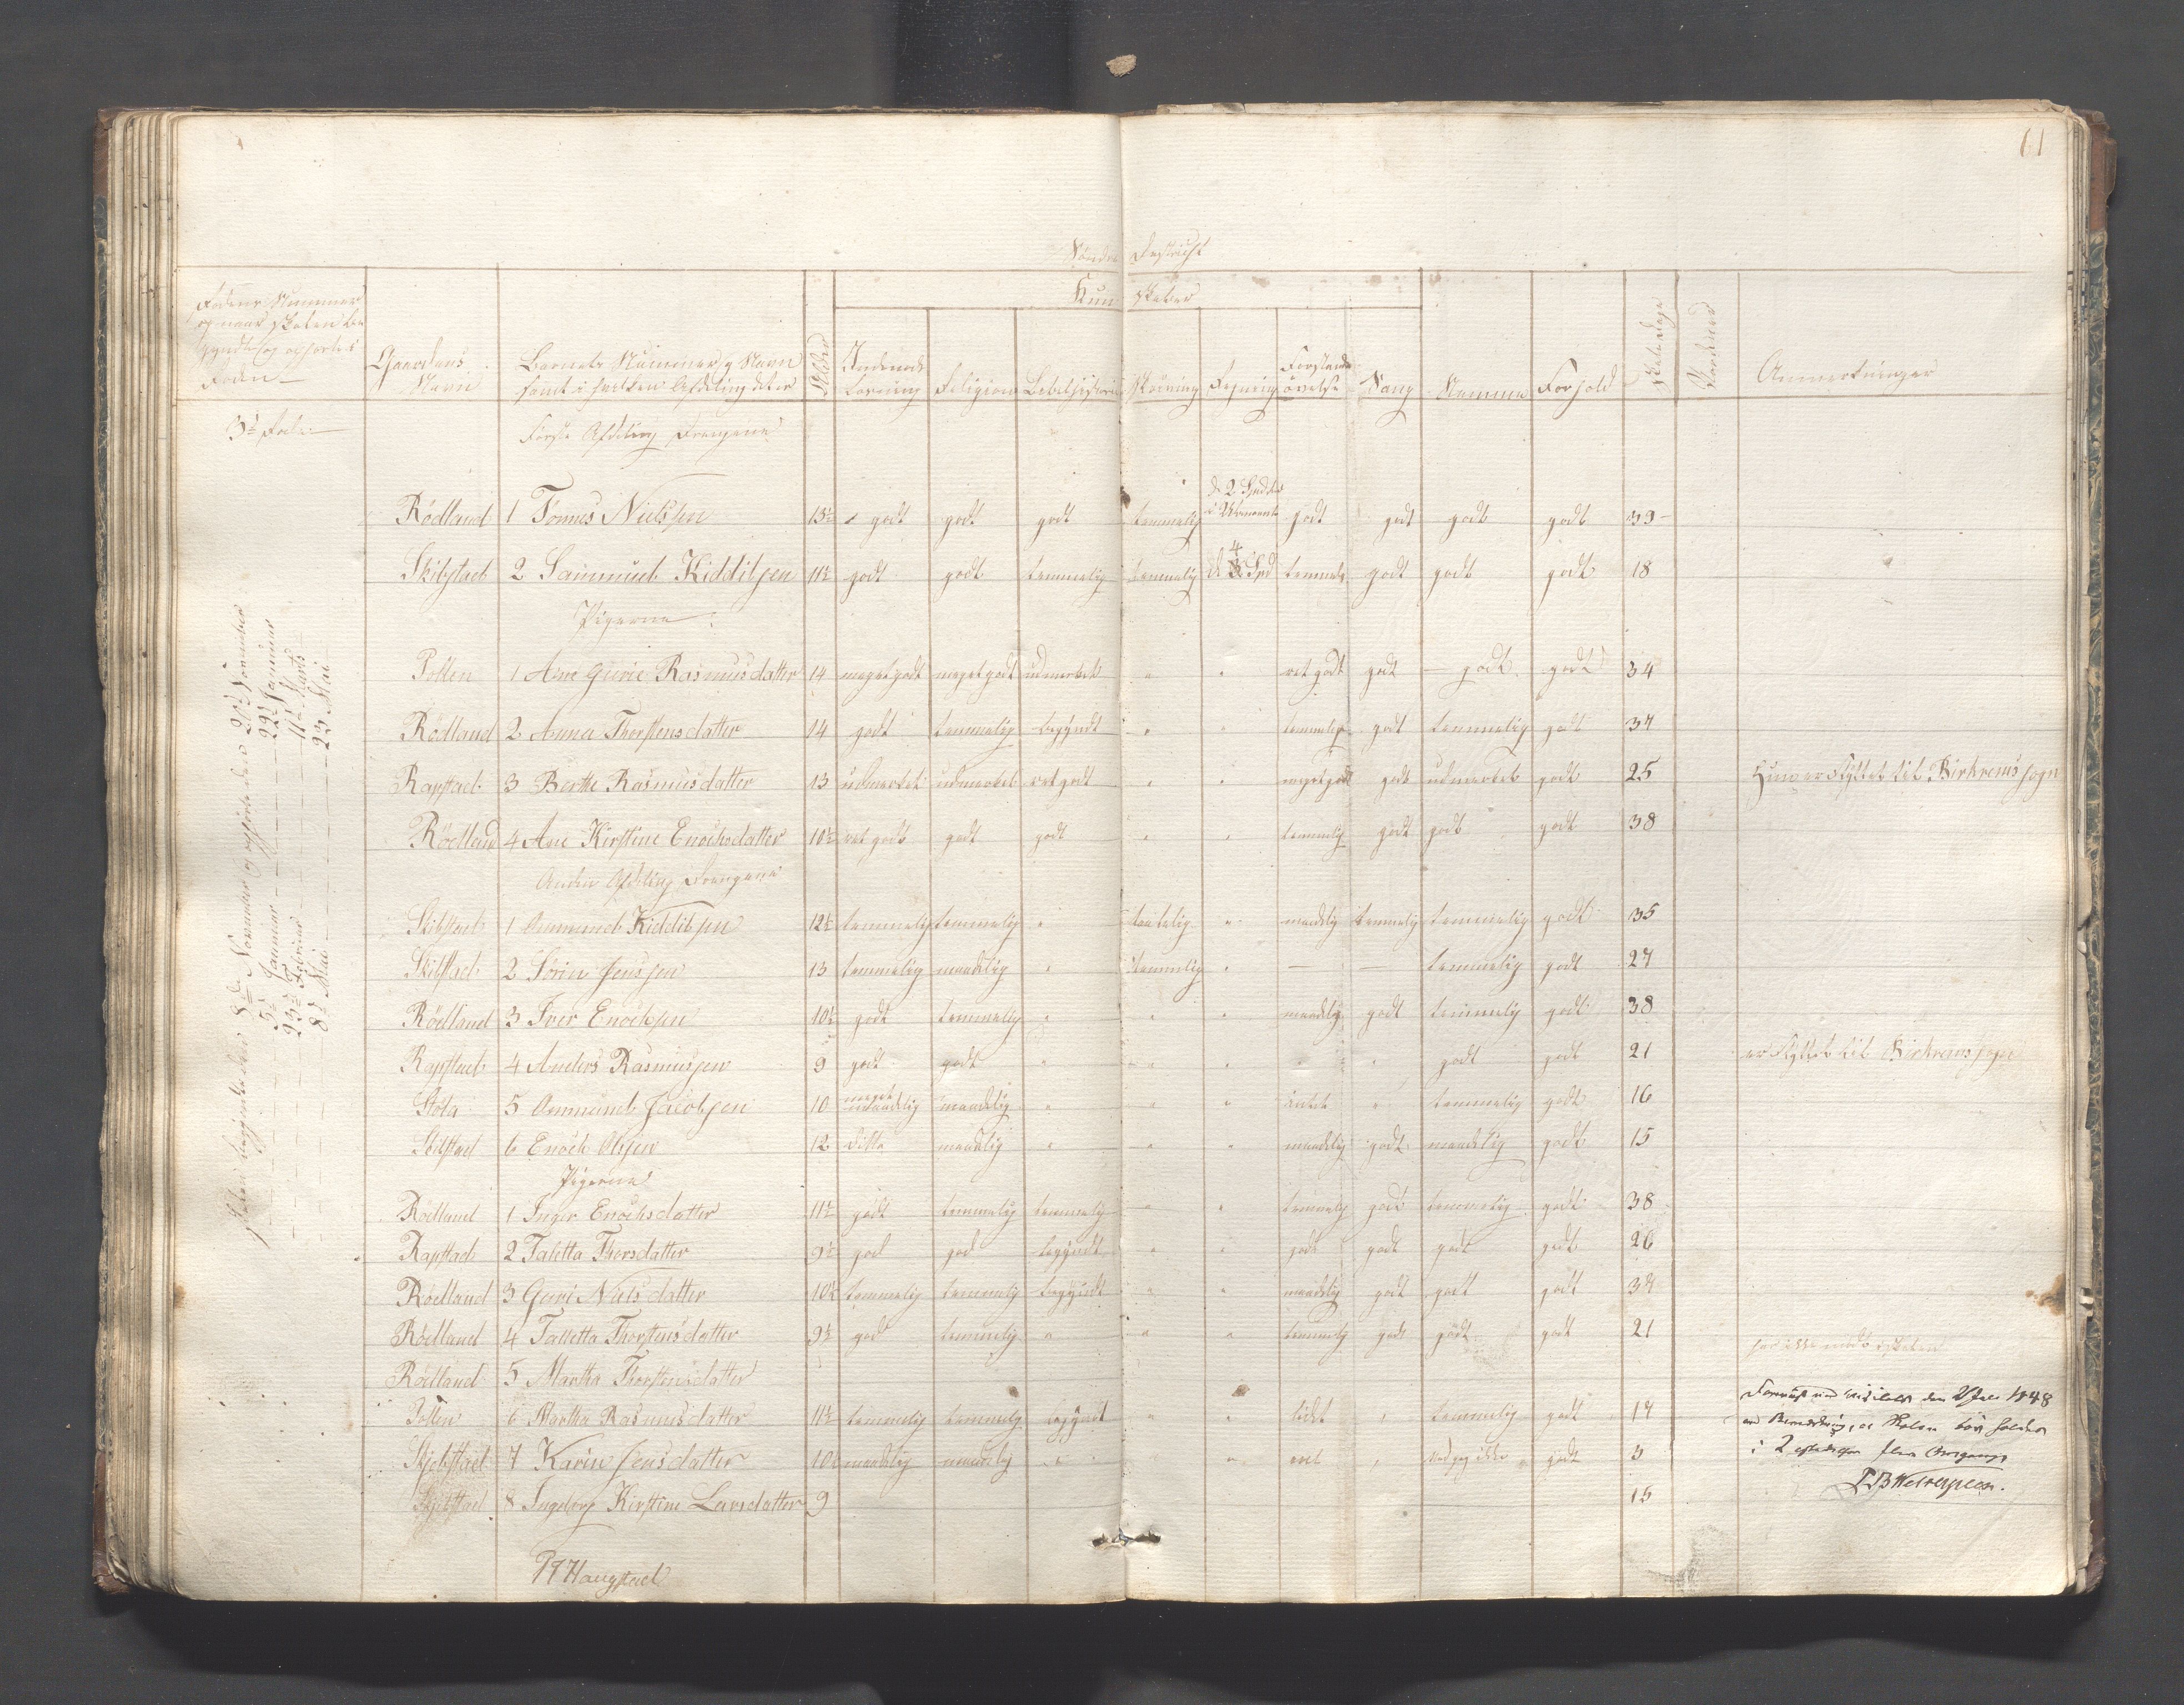 61
Søndre Destrict
Kundskaber
Rodens Nummer
og naar Skolen be
gyndtes og ophørtes
Roden
Gaardens
Navn
Barnets Nummer og Navn
samt i hvilken Afdeling det er
Alder
Indenads
Læsning
Religion
Bibelhistorie
Skrivning
Regning
Forstands
øvelse
Sang
Nemme
Forhold
Skoledage
Anmerkninger
3die Rode
Første Afdeling Drengene
Rødland 1 Tønnes Nielsen 13½ godt godt godt temmelig godt godt godt godt 39
Skibstad 2 Sammuel Kiddilsen 11½ godt godt temmelig temmelig temmelig godt godt godt 18
Pigerne
1 Ane Gurie Rasmusdatter 14 megetgodt megetgodt udmerket " " ret godt godt godt godt 34
Rødland 2 Anna Thorstensdatter 14 godt temmelig begyndt " " temmelig godt temmelig godt 37
Rapstad 3 Berthe Rasmusdatter 13 udmerket udmerket retgodt " " megetgodt godt udmerket godt 25 Hun er flyttet til Birkrems sogn
Rødland 4 Ane Kirstine Enochsdatter 10½ ret godt godt godt " " temmelig godt godt godt 38
Anden Afdeling Drengene
Skibstad 1 Ommund Kiddilsen 12½ temmelig temmelig " " maadelig temmelig temmelig godt 35
Skibstad 2 Sørin Jensen 13 temmelig maadelig " temmelig " — — temmelig godt 27
Rødland 3 Iver Enochsen 10½ godt temmelig " " " maadelig godt temmelig godt 38
Rapstad 4 Anders Rasmussen 9 godt godt " " " " " godt godt 21 er flyttet til Birkrems sogn
Støla 5 Ommund Jacobsen 10 meget maadelig maadelig " " " " temmelig godt 16
Skibstad 6 Enoch Olsen 12 ditto maadelig " " " maadelig godt maadelig godt 15
Pigerne
Rødland 1 Inger Enochsdatter 11½ godt temmelig temmelig " " temmelig godt temmelig godt 38
Rapstad 2 Taletta Thorsdatter 9½ god god begyndt " " godt godt godt godt 26
Rødland 3 Guri Nielsdatter 10½ temmelig temmelig begyndt " " maadelig godt godt godt
Rødland 4 Talletta Thorstensdatter 9½ god temmelig " " " temmelig godt godt godt 21
Rødland 5 Martha Thorstensdatter har ikke mødt i skolen
6 Martha Rasmusdatter 11½ temmelig temmelig begyndt " " lidet " temmelig godt 17
Skjebstad 7 Karin Jensdatter 10 maadelig maadelig " " " godt 3
Skjebstad 8 Ingeborg Kirstine Larsdatter 9 15
Skolen begyndtes den 8de November og ophørte den 20de November
5te Januar — 22de Januar
23de Februar — 11te Marts
8de Mai — 23 Mai